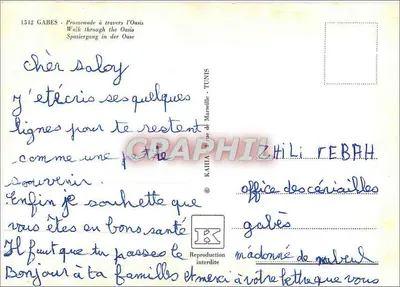 1512 GABES - Promenade à travers l'Oasis
Walk through the Oasis
Spaziergang in der Oase
chèr saloy
j'etécris ses quelques
lignes pour te restent
comme une petie
souvenir.
Enfin je souhette que
vous êtes en bons santé
Il fuut que tu passes le
Bonjour à ta familles et merci à votre lettre que vous
KAHIA rue de Marseille - TUNIS
GRAPHIL
K
Reproduction
interdite
ZHILI REBAH
office des cériailles
gabès